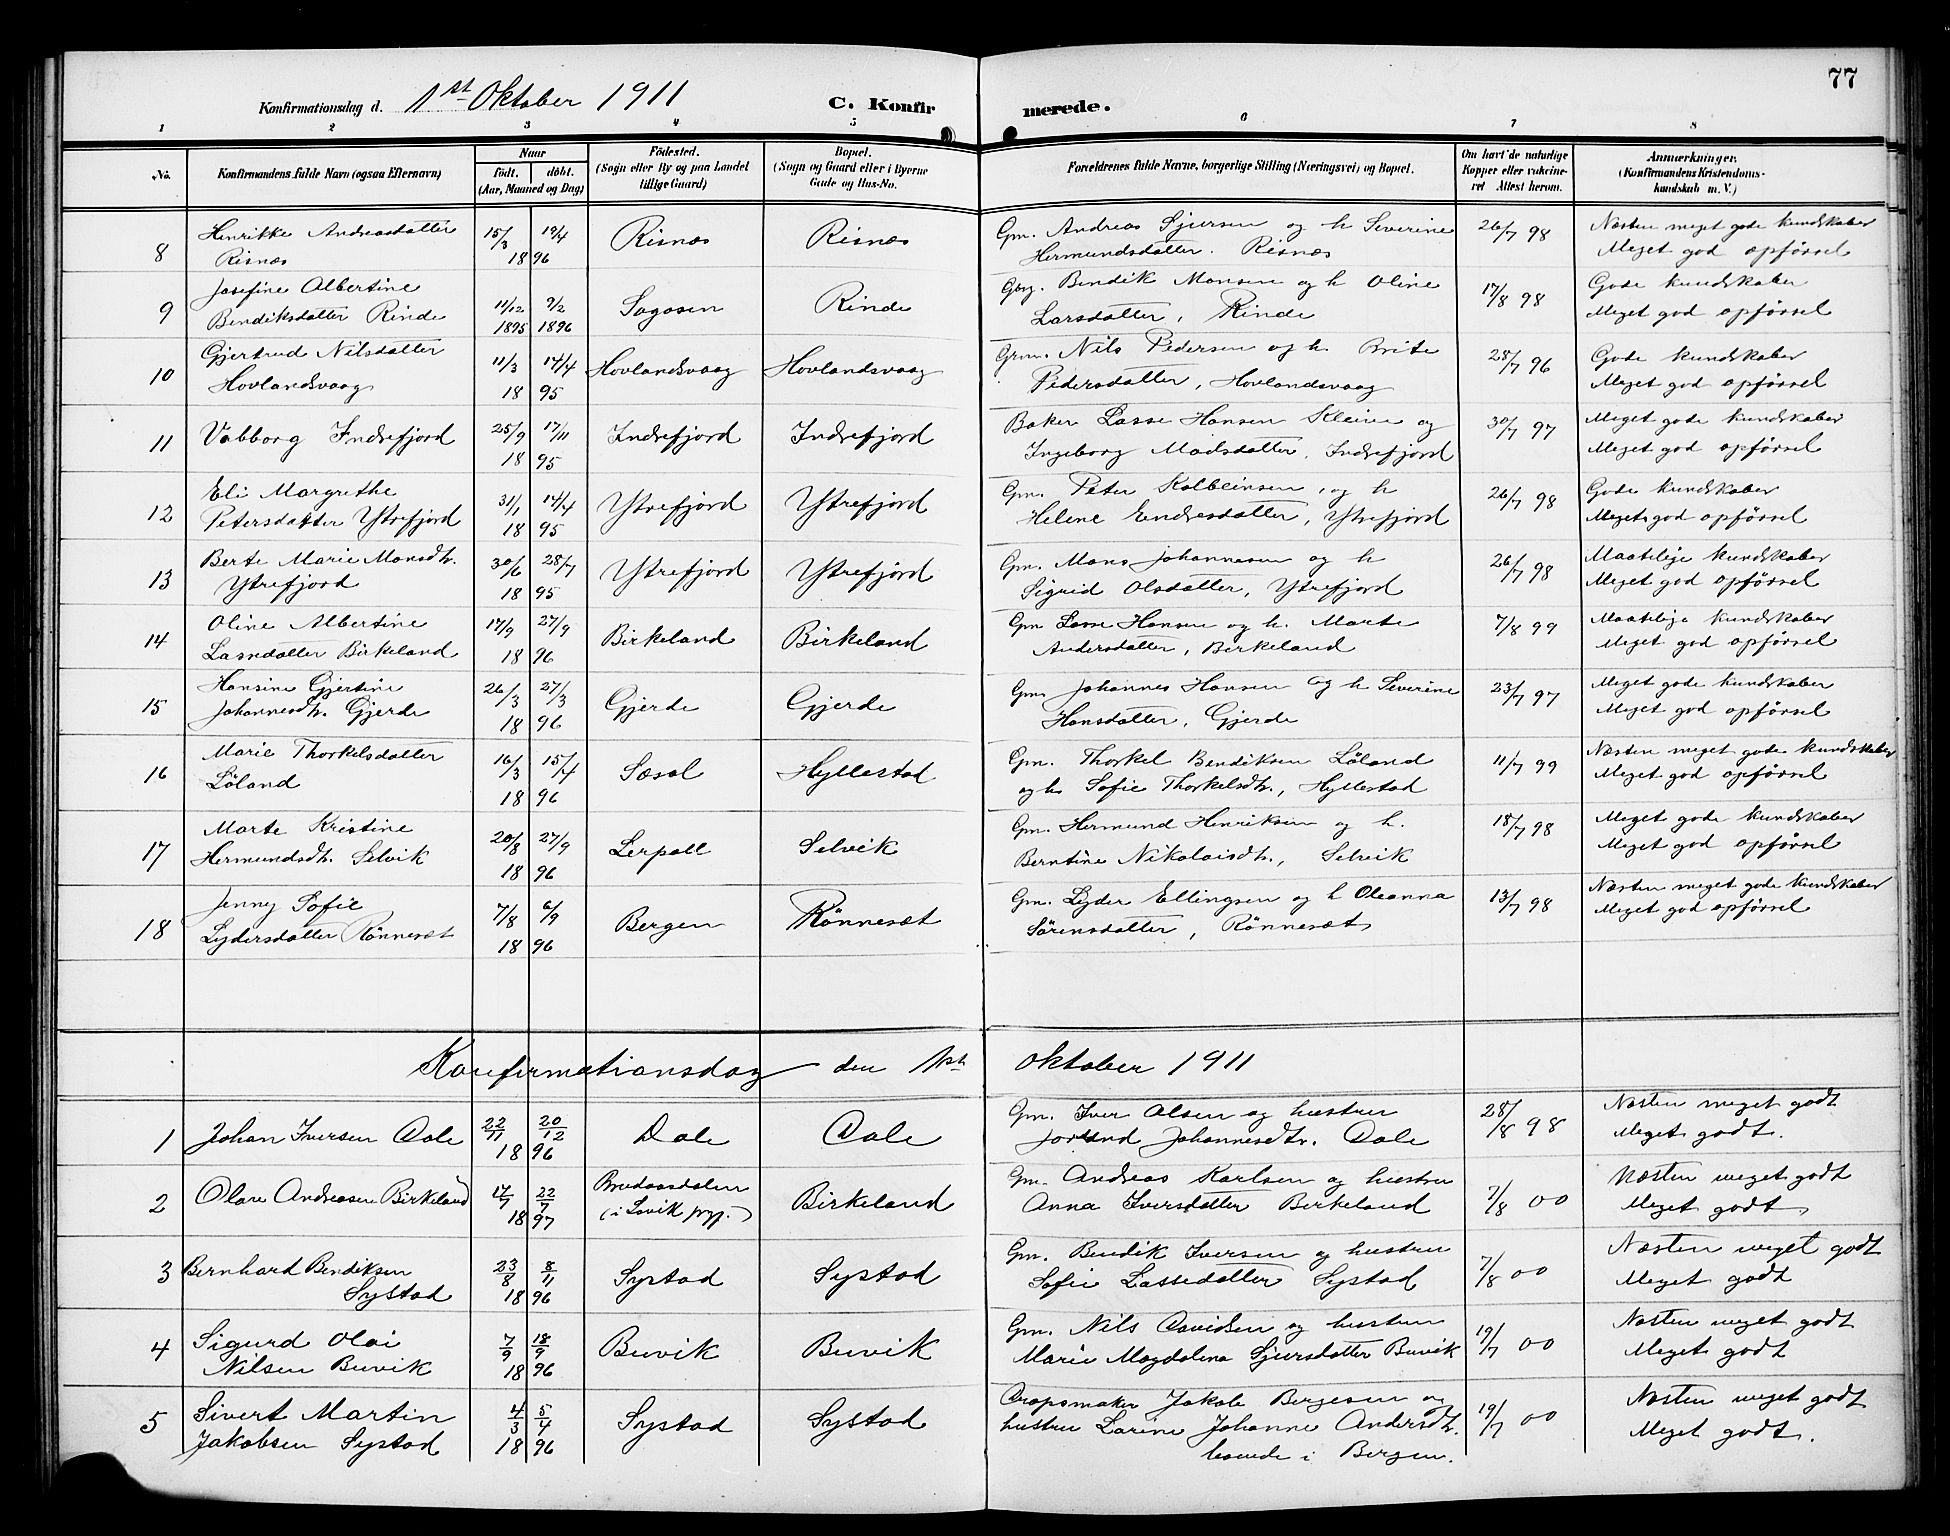 77
Konfirmationsdag d. 1st Oktober 1911 C. Konfirmerede.
1 2 3 4 5 6 7 8
No. Konfirmandens fulde Navn (ogsaa Efternavn) Naar født. døbt. (Aar, Maaned og Dag) Fødested. (Sogn eller By og paa Landet tillige Gaard) Bopæl. (Sogn og Gaard eller i Byerne Gade og Hus-No. Forældrenes fulde Navne, borgerlige Stilling (Næringsvei) og Bopæl. Om havt de naturlige Kopper eller vaccineret Attest herom. Anmærkninger. (Konfirmandens Kristendomskundskab m. V.)
8 Henrikke Andreasdatter Risnes 15/3 19/4 1896 Risnes Risnes Gm. Andreas Sjursen og h Severine Hermundsdatter. Risnes 26/7 98 Næsten meget gode kundskaber Meget god opførsel
9 Josefine Albertine Bendiksdatter Rinde 11/12 1895 9/2 1896 Sagosen Rinde Bendik Monsen og h Oline Larsdatter, Rinde 17/8 98 Gode kundskaber Meget god opførsel
10 Gjertrud Nilsdatter Hovlandsvaag 11/3 14/4 1895 Hovlandsvaag Hovlandsvaag Grm. Nils Pedersen og h. Brite Pedersdatter, Hovlandsvaag 28/7 96 Gode kundskaber Meget god opførsel
11 Valborg Indrefjord 25/9 17/11 1895 Indrefjord Indrefjord Baker Lasse Hansen Kleive og Ingeborg Madsdatter, Indrefjord 30/7 97 Meget gode kundskaber Meget god opførsel
12 Eli Margrethe Petersdatter Ytrefjord 31/1 14/4 1895 Ytrefjord Ytrefjord Gm. Peter Kolbeinsen, og h Helene Endresdatter, Ytrefjord 26/7 98 Gode kundskaber Meget god opførsel
13 Berte Marie Monsdtr. Ytrefjord 30/6 28/7 1895 Ytrefjord Ytrefjord Gm. Mons Johannesen og h Sigrid Olsdatter, Ytrefjord 26/7 98 Maatelige kundskaber Meget god opførsel
14 Oline Albertine Lassedatter Birkeland 17/9 27/9 1896 Birkeland Birkeland Gm Lasse Hansen og h. Marte Andersdatter, Birkeland 7/8 99 Maatelige kundskaber Meget god opførsel
15 Hansine Gjertine Johannesdtr. Gjerde 26/3 27/3 1896 Gjerde Gjerde Gm. Johannes Hansen og h Severine Hansdatter, Gjerde 23/7 97 Meget gode kundskaber Meget god opførsel
16 Marie Thorkelsdatter Løland 16/3 15/4 1896 Sæsol Hyllestad Gm. Thorkel Bendiksen Løland og h Sofie Thorkelsdtr., Hyllestad 11/7 99 Næsten meget gode kundskaber Meget god opførsel
17 Marte Kristine Hermundsdtr. Selvik 20/8 27/9 1896 Lerpoll Selvik Gm. Hermund Henriksen og h. Berntine Nikolaisdtr., Selvik 18/7 98 Meget gode kundskaber Meget god opførsel
18 Jenny Sofie Lydersdatter Rønneset 7/8 6/9 1896 Bergen Rønneset Gm. Lyder Ellingsen og h Oleanna Sørensdatter, Rønneset 13/7 98 Næsten meget gode kundskaber Meget god opførsel
Konfirmationsdag den 1ste Oktober 1911
1 Johan Iversen Dale 22/11 20/12 1896 Dale Dale Gm. Iver Olsen og hustru Jorund Johannesdtr. Dale 28/8 98 Næsten meget godt Meget godt.
2 Olav Andreasen Birkeland 17/7 22/7 1897 (i Lavik prgj.) Birkeland Gm. Andreas Karlsen og hustru Anna Iversdatter Birkeland 7/8 00 Næsten meget godt Meget godt
3 Bernhard Bendiksen Systad 23/8 8/11 1896 Systad Systad Gm. Bendik Iversen og hustru Sofie Lassedatter Systad 7/8 00 Næsten meget godt Meget godt
4 Sigurd Olai Nilsen Buvik 7/9 18/9 1896 Buvik Buvik Gm. Nils Davidsen og hustru Marie Magdalena Sjursdatter Buvik 19/7 00 Næsten meget godt Meget godt
5 Sivert Martin Jakobsen Systad 4/3 5/4 1896 Systad Systad Dropsmaker Jakob Bergesen og hustru Larine Johanne Andersdtr. boende i Bergen. 19/7 00 Næsten meget godt Meget godt.